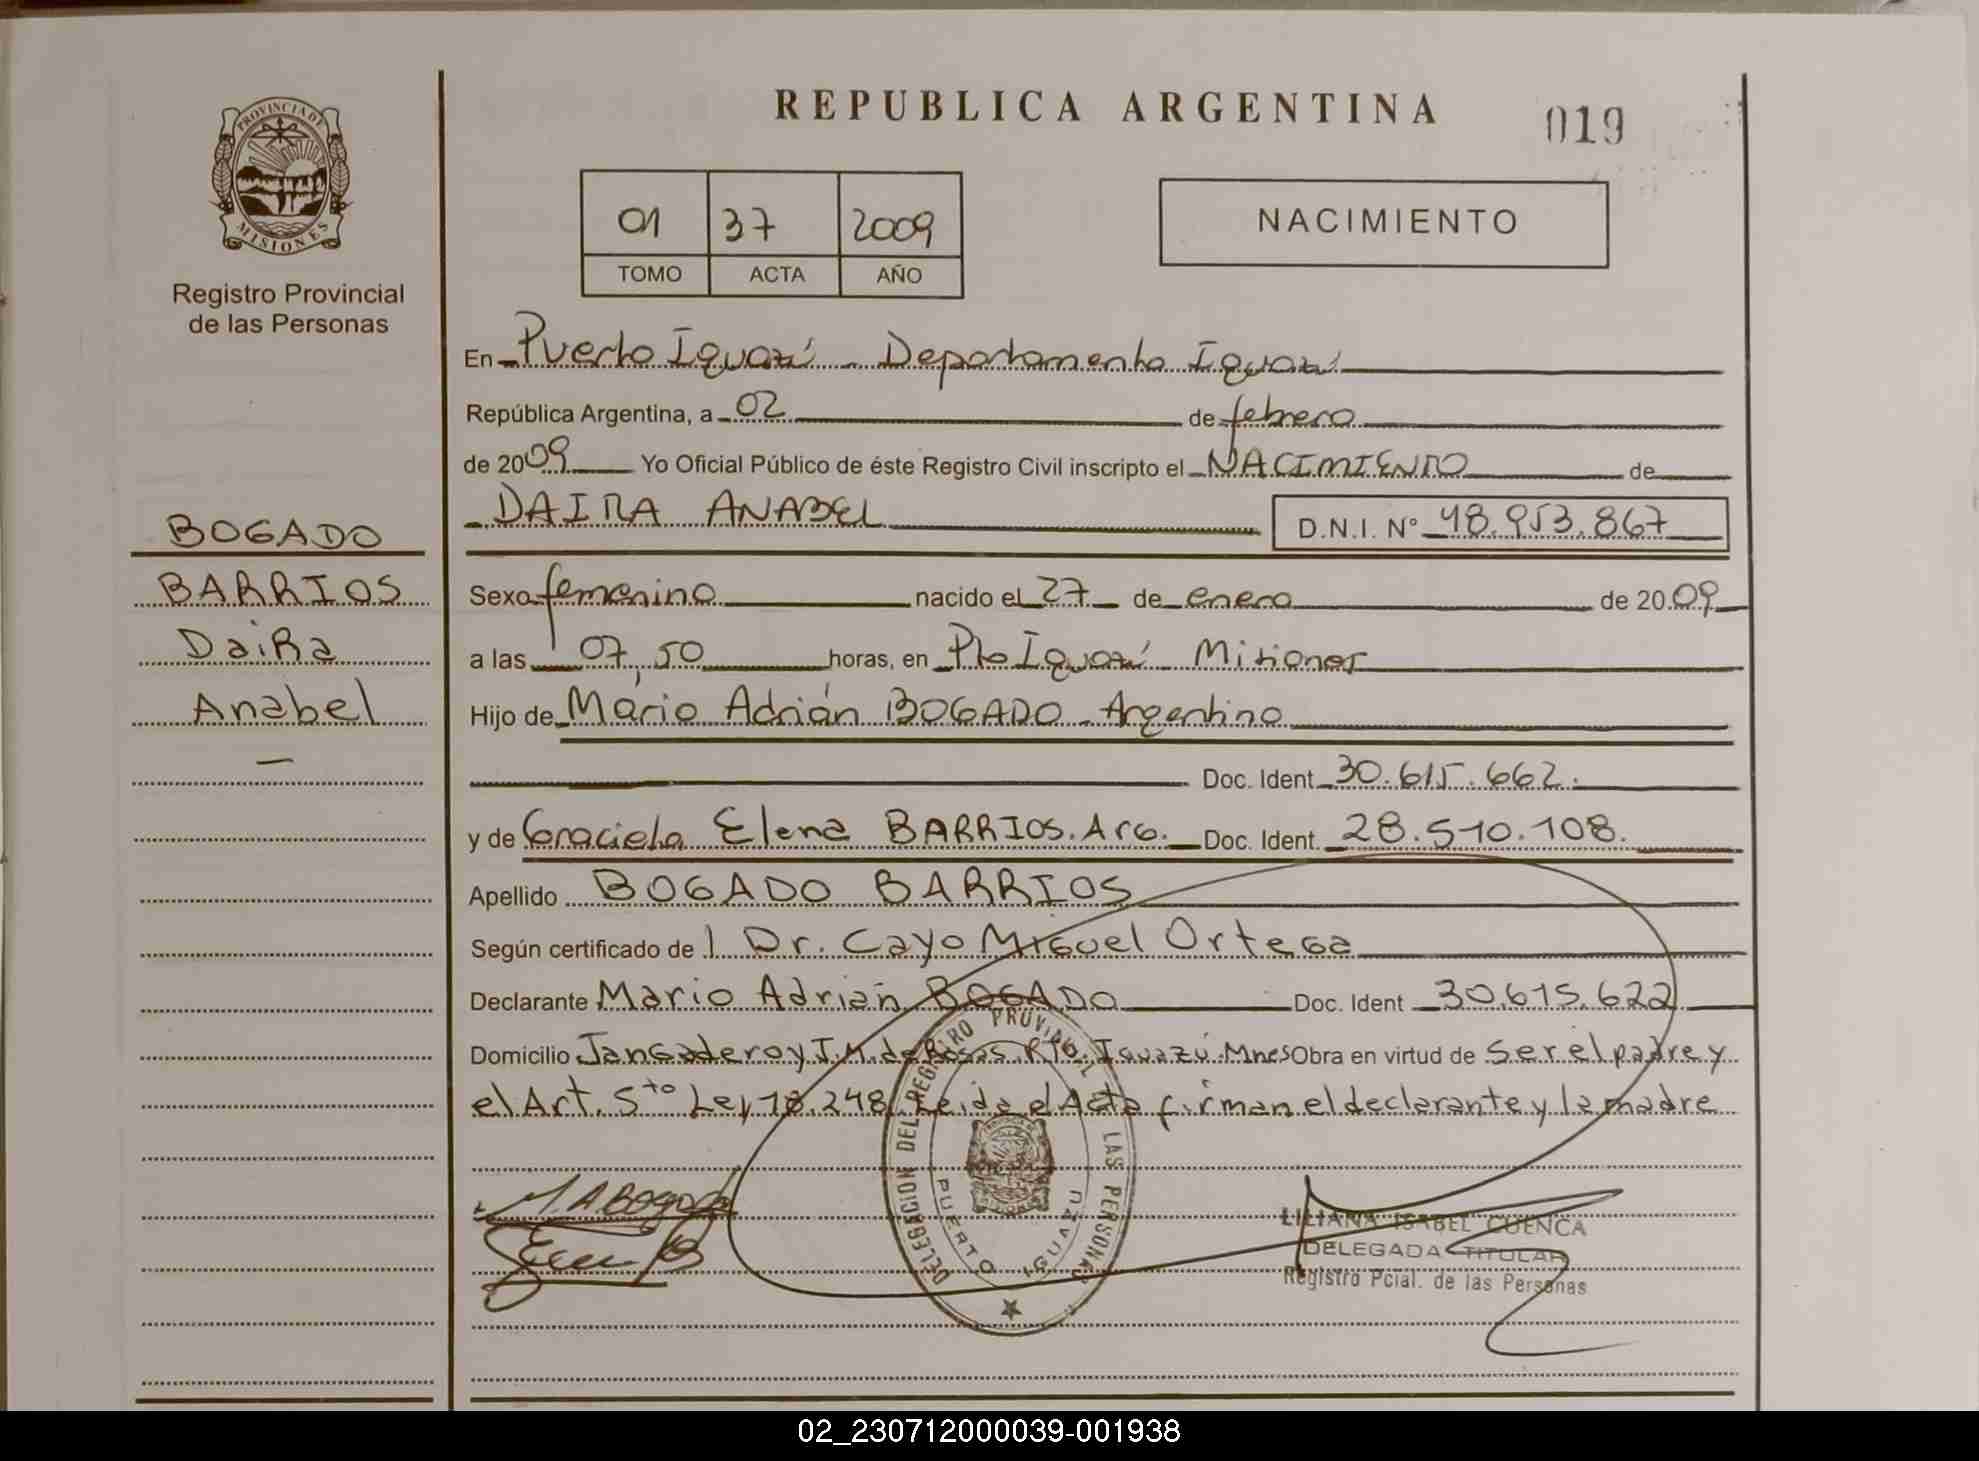 PROVINCIA DE
MISIONES
Registro Provincial
de las Personas
BOGADO
BARRIOS
Daira
Anabel
REPUBLICA ARGENTINA
019
01 37 2009
TOMO ACTA AÑO
NACIMIENTO
En Puerto Iguazú - Departamento Iguazú
República Argentina, a 02 de febrero
de 2009 Yo Oficial Público de éste Registro Civil inscripto el NACIMIENTO de
DAIRA ANABEL D.N.I. Nº 48.953.867
Sexo femenino nacido el 27 de enero de 2009
a las 07,50 horas, en Pto Iguazú Misiones
Hijo de Mario Adrián BOGADO - Argentino
Doc. Ident 30.615.662.
y de Graciela Elena BARRIOS. Arg. Doc. Ident. 28.510.108.
Apellido BOGADO BARRIOS
Según certificado de Dr. Cayo Miguel Ortega
Declarante Mario Adrian BOGADO Doc. Ident 30.615.622
Domicilio Jangadero y J.M. de Rosas. Pto. Iguazú. Mnes Obra en virtud de ser el padre y
el Art. 5to Ley 18.248. Leida el Acta firman el declarante y la madre
M. A Bogado
DELEGACION DEL REGISTRO PROVINCIAL LAS PERSONAS
PUERTO IGUAZU
LILIANA ISABEL CUENCA
DELEGADA TITULAR
Registro Pcial. de las Personas
02_230712000039-001938